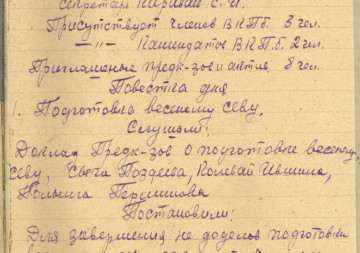 Секретарь
Присутствует членов ВКПб. 3 чел.
— " — Кандидатов ВКП.б. 2 чел.
Приглашенные предк-зов и актив 8 чел.
Повестка дня
1. Подготовка весеннему севу,
Слушали:
Доклад Предк-зов о подготовке весеннему
севу, Света Поздеева, Ившина,
Першинова
Постановили:
Для завершения не доделов подготовки